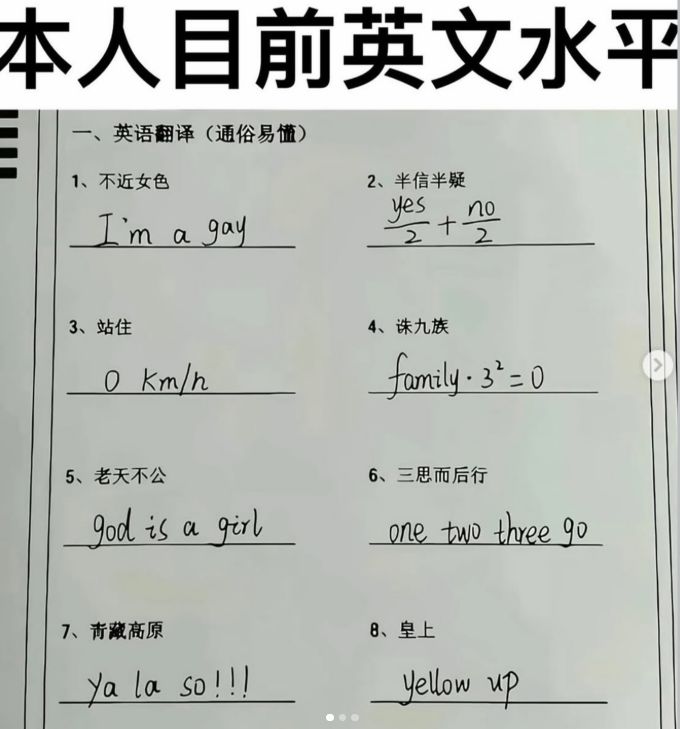 本人目前英文水平
一、英语翻译（通俗易懂）
1、不近女色
I'm a gay
2、半信半疑
yes/2 + no/2
3、站住
0 km/h
4、诛九族
family·3²=0
5、老天不公
god is a girl
6、三思而后行
one two three go
7、青藏高原
ya la so!!!
8、皇上
yellow up